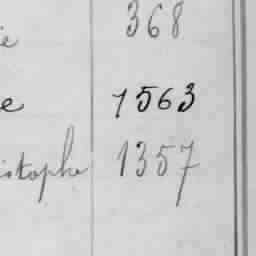 ie 368
e 1563
istophe 1357